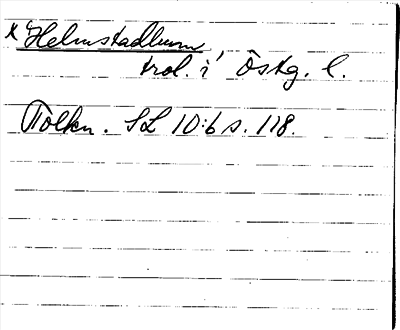 * Helmstadhum
trol. i Östg. l.
Tolkn. SL 10:6 s. 118.